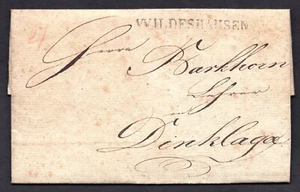 WILDESHAUSEN
Herrn
Barkhorn
Lehrer
in
Dinklage